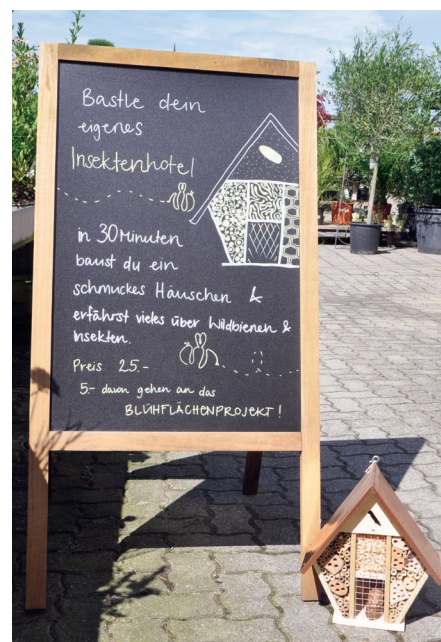 Bastle dein
eigenes
Insektenhotel
in 30 Minuten
baust du ein
schmuckes Häuschen &
erfährst vieles über Wildbienen &
Insekten.
Preis 25.-
5.- davon gehen an das
BLÜHFLÄCHENPROJEKT!